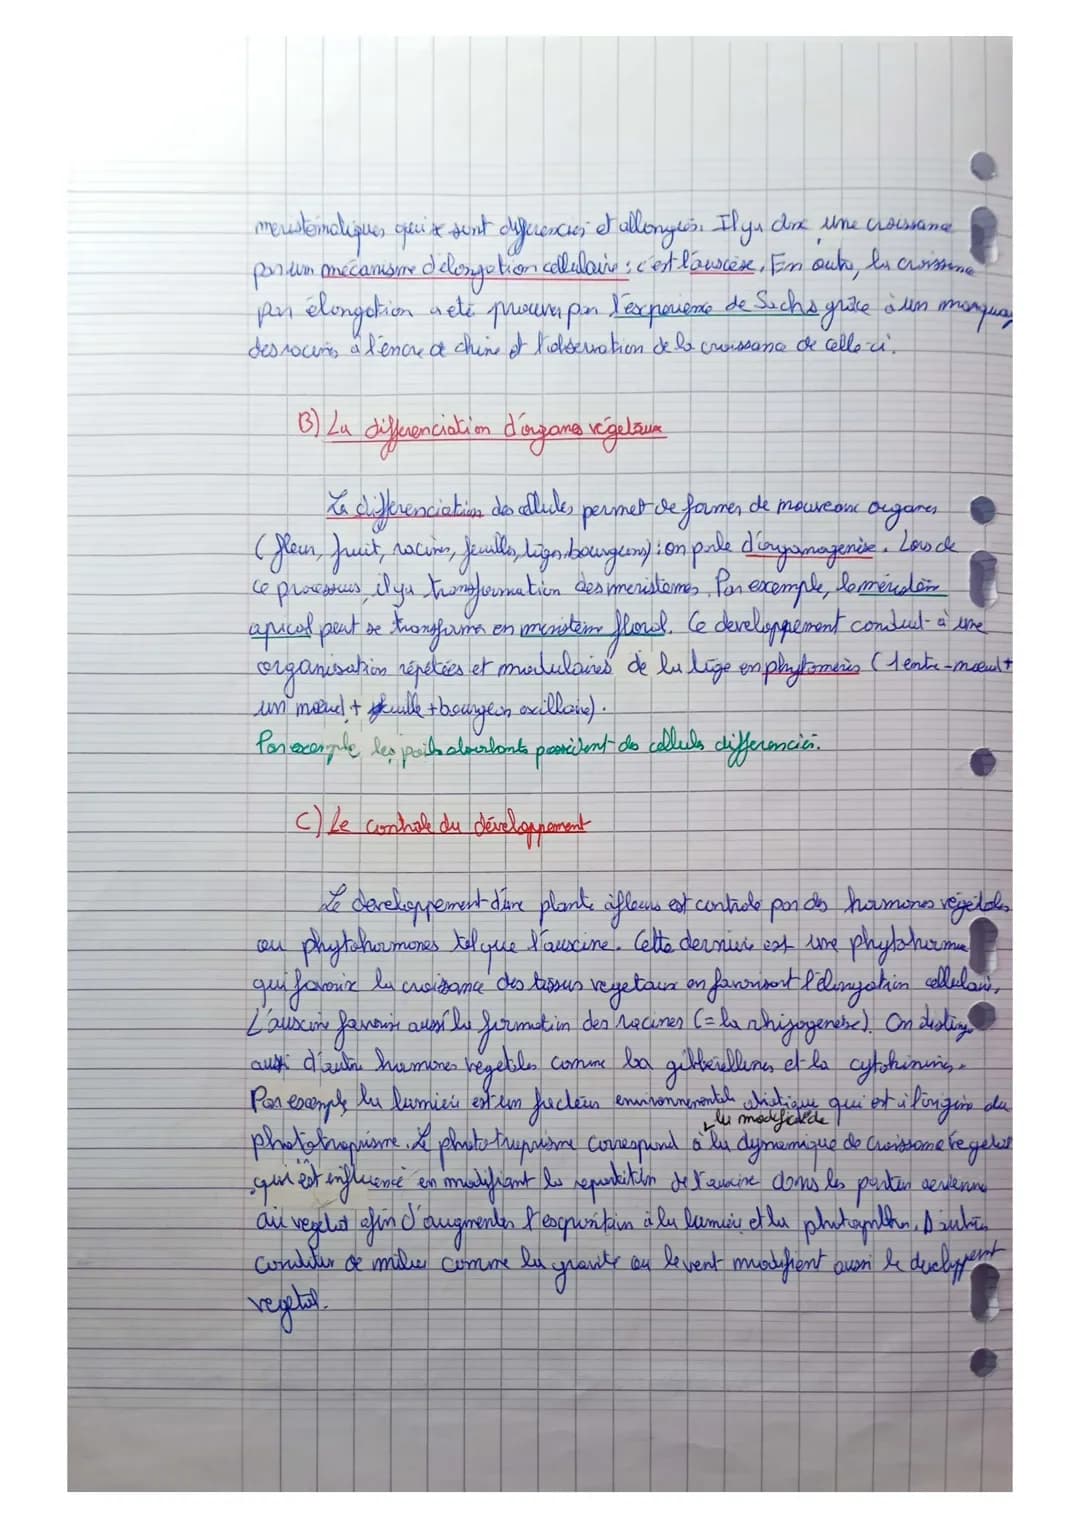 meristématiques qui se sont différenciés et allongés. Il y a donc une croissance
par un mécanisme d'élongation cellulaire : c'est l'auxèse. En outre, la croissance
par élongation a été prouver par l'expérience de Sachs grâce à un marquag
des racines à l'encre de chine et l'observation de la croissance de celle-ci.
B) La différenciation d'organes végétaux
La différenciation des cellules permet de former de nouveaux organes
(fleur, fruit, racines, feuilles, tiges, bourgeons) : on parle d'organogenèse. Lors de
ce processus, il y a transformation des meristemes. Par exemple, le méristème
apical peut se transformer en meristem floral. Ce developpement conduit à une
organisation répétées et modulaires de la tige en phytomères (1 entre-nœud +
un nœud + feuille + bourgeon axillaire).
Par exemple les poils absorbants possèdent des cellules différenciés.
C) Le controle du développement
Le developpement d'une plante à fleurs est controlé par des hormones végétales
ou phytohormones tel que l'auxine. Cette dernière est une phytohormone
qui favorise la croissance des tissus vegetaux en favorisant l'élongation cellulaire.
L'auxine favorise aussi la formation des racines (= la rhizogenese). On distingue
aussi d'autre hormones vegetales comme la gibbérellines et la cytokinines.
Par exemple la lumière est un facteur environnemental abiotique qui est à l'origine du
la modif de
phototropisme. Le phototropisme correspond à la dynamique de croissance vegetal
qui est influencé en modifiant la repartition de l'auxine dans les parties aerienne
du vegetal afin d'augmenter l'exposition à la lumière et la photosynthèse. D'autres
conditions de milieu comme la gravité ou le vent modifient aussi le developpement
vegetal.